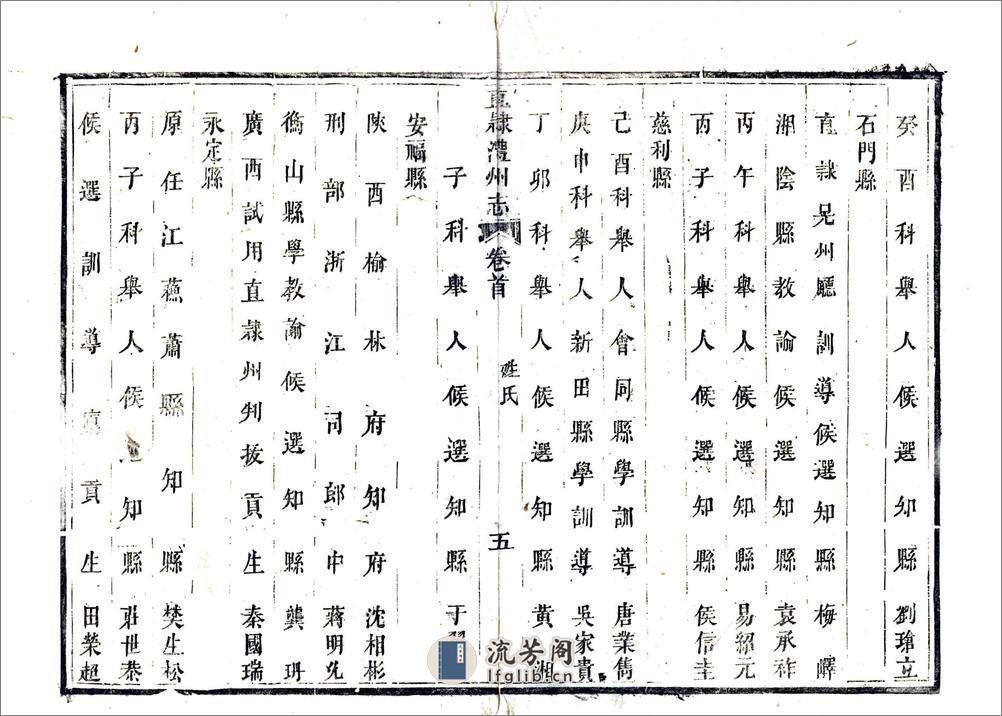 癸酉科舉人候選知縣劉瑲立
石門縣
直隸晃州廳訓導候選知縣梅嶧
湖陰縣教諭候選知縣袁承祚
丙午科舉人候選知縣易紹元
丙子科舉人候選知縣侯信圭
慈利縣
己酉科舉人會同縣學訓導唐業雋
庚申科舉人新田縣學訓導吳家貴
丁卯科舉人候選知縣黃湘
子科舉人候選知縣于
直隸澧州志 卷首 姓氏 五
安福縣
陝西榆林府知府沈相彬
刑部浙江司郎中蔣明
衡山縣學教諭候選知縣龔
廣西試用直隸州判拔貢生秦國瑞
永定縣
原任江蘇蕭縣知縣樊生松
丙子科舉人候知縣莊世泰
候選訓導廩貢生田榮超
流芳阁
lfglib.cn